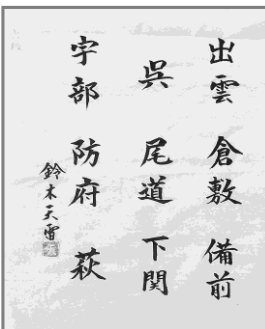 出雲 倉敷 備前
呉 尾道 下関
宇部 防府 萩
鈴木天雷